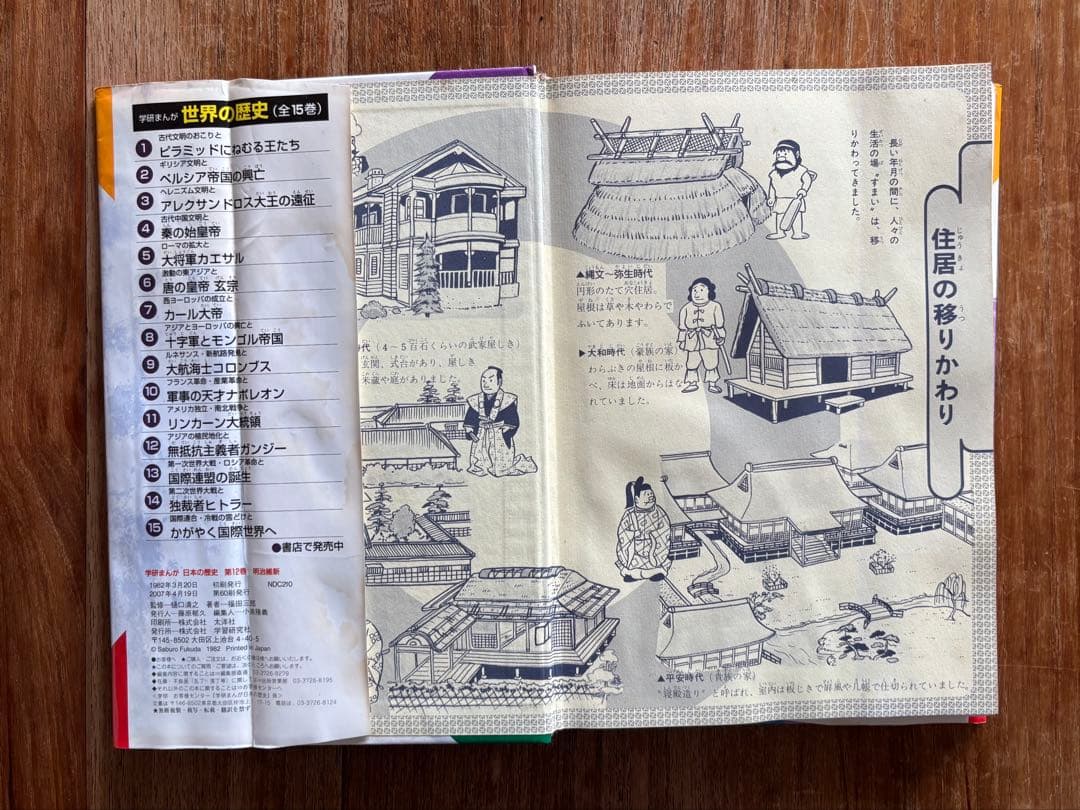 学研まんが 世界の歴史 (全15巻)
古代文明のおこりと
1 ピラミッドにねむる王たち
ギリシア文明と
2 ペルシア帝国の興亡
ヘレニズム文明と
3 アレクサンドロス大王の遠征
古代中国文明と
4 秦の始皇帝
ローマの拡大と
5 大将軍カエサル
激動の東アジアと
6 唐の皇帝 玄宗
西ヨーロッパの成立と
7 カール大帝
アジアとヨーロッパの興亡と
8 十字軍とモンゴル帝国
ルネサンス・新航路発見と
9 大航海士コロンブス
フランス革命・産業革命と
10 軍事の天才ナポレオン
アメリカ独立・南北戦争と
11 リンカーン大統領
アジアの植民地化と
12 無抵抗主義者ガンジー
第一次世界大戦・ロシア革命と
13 国際連盟の誕生
第二次世界大戦と
14 独裁者ヒトラー
国際連合・冷戦の雪どけと
15 かがやく国際世界へ
●書店で発売中
学研まんが 日本の歴史 第12巻 明治維新
1982年3月20日 初刷発行 NDC210
2007年4月19日 第60刷発行
監修─樋口清之 著者─福田三郎
発行人─藤原郁久 編集人─小
印刷所─株式会社 太洋社
発行所─株式会社 学習研究社
〒145-8502 大田区上池台4-40-5
© Saburo Fukuda 1982 Printed in Japan
住居の移りかわり
長い年月の間に、人々の
生活の場“すまい”は、移
りかわってきました。
▲縄文〜弥生時代
円形のたて穴住居。
屋根は草や木やわらで
ふいてあります。
▶大和時代(豪族の家)
わらぶきの屋根に板か
べ、床は地面からはな
れていました。
▲平安時代(貴族の家)
“寝殿造り”と呼ばれ、室内は板じきで屏風や几帳で仕切られていました。
時代(4〜5百石くらいの武家屋しき)
玄関、式台があり、屋しき
米蔵や庭がありました。